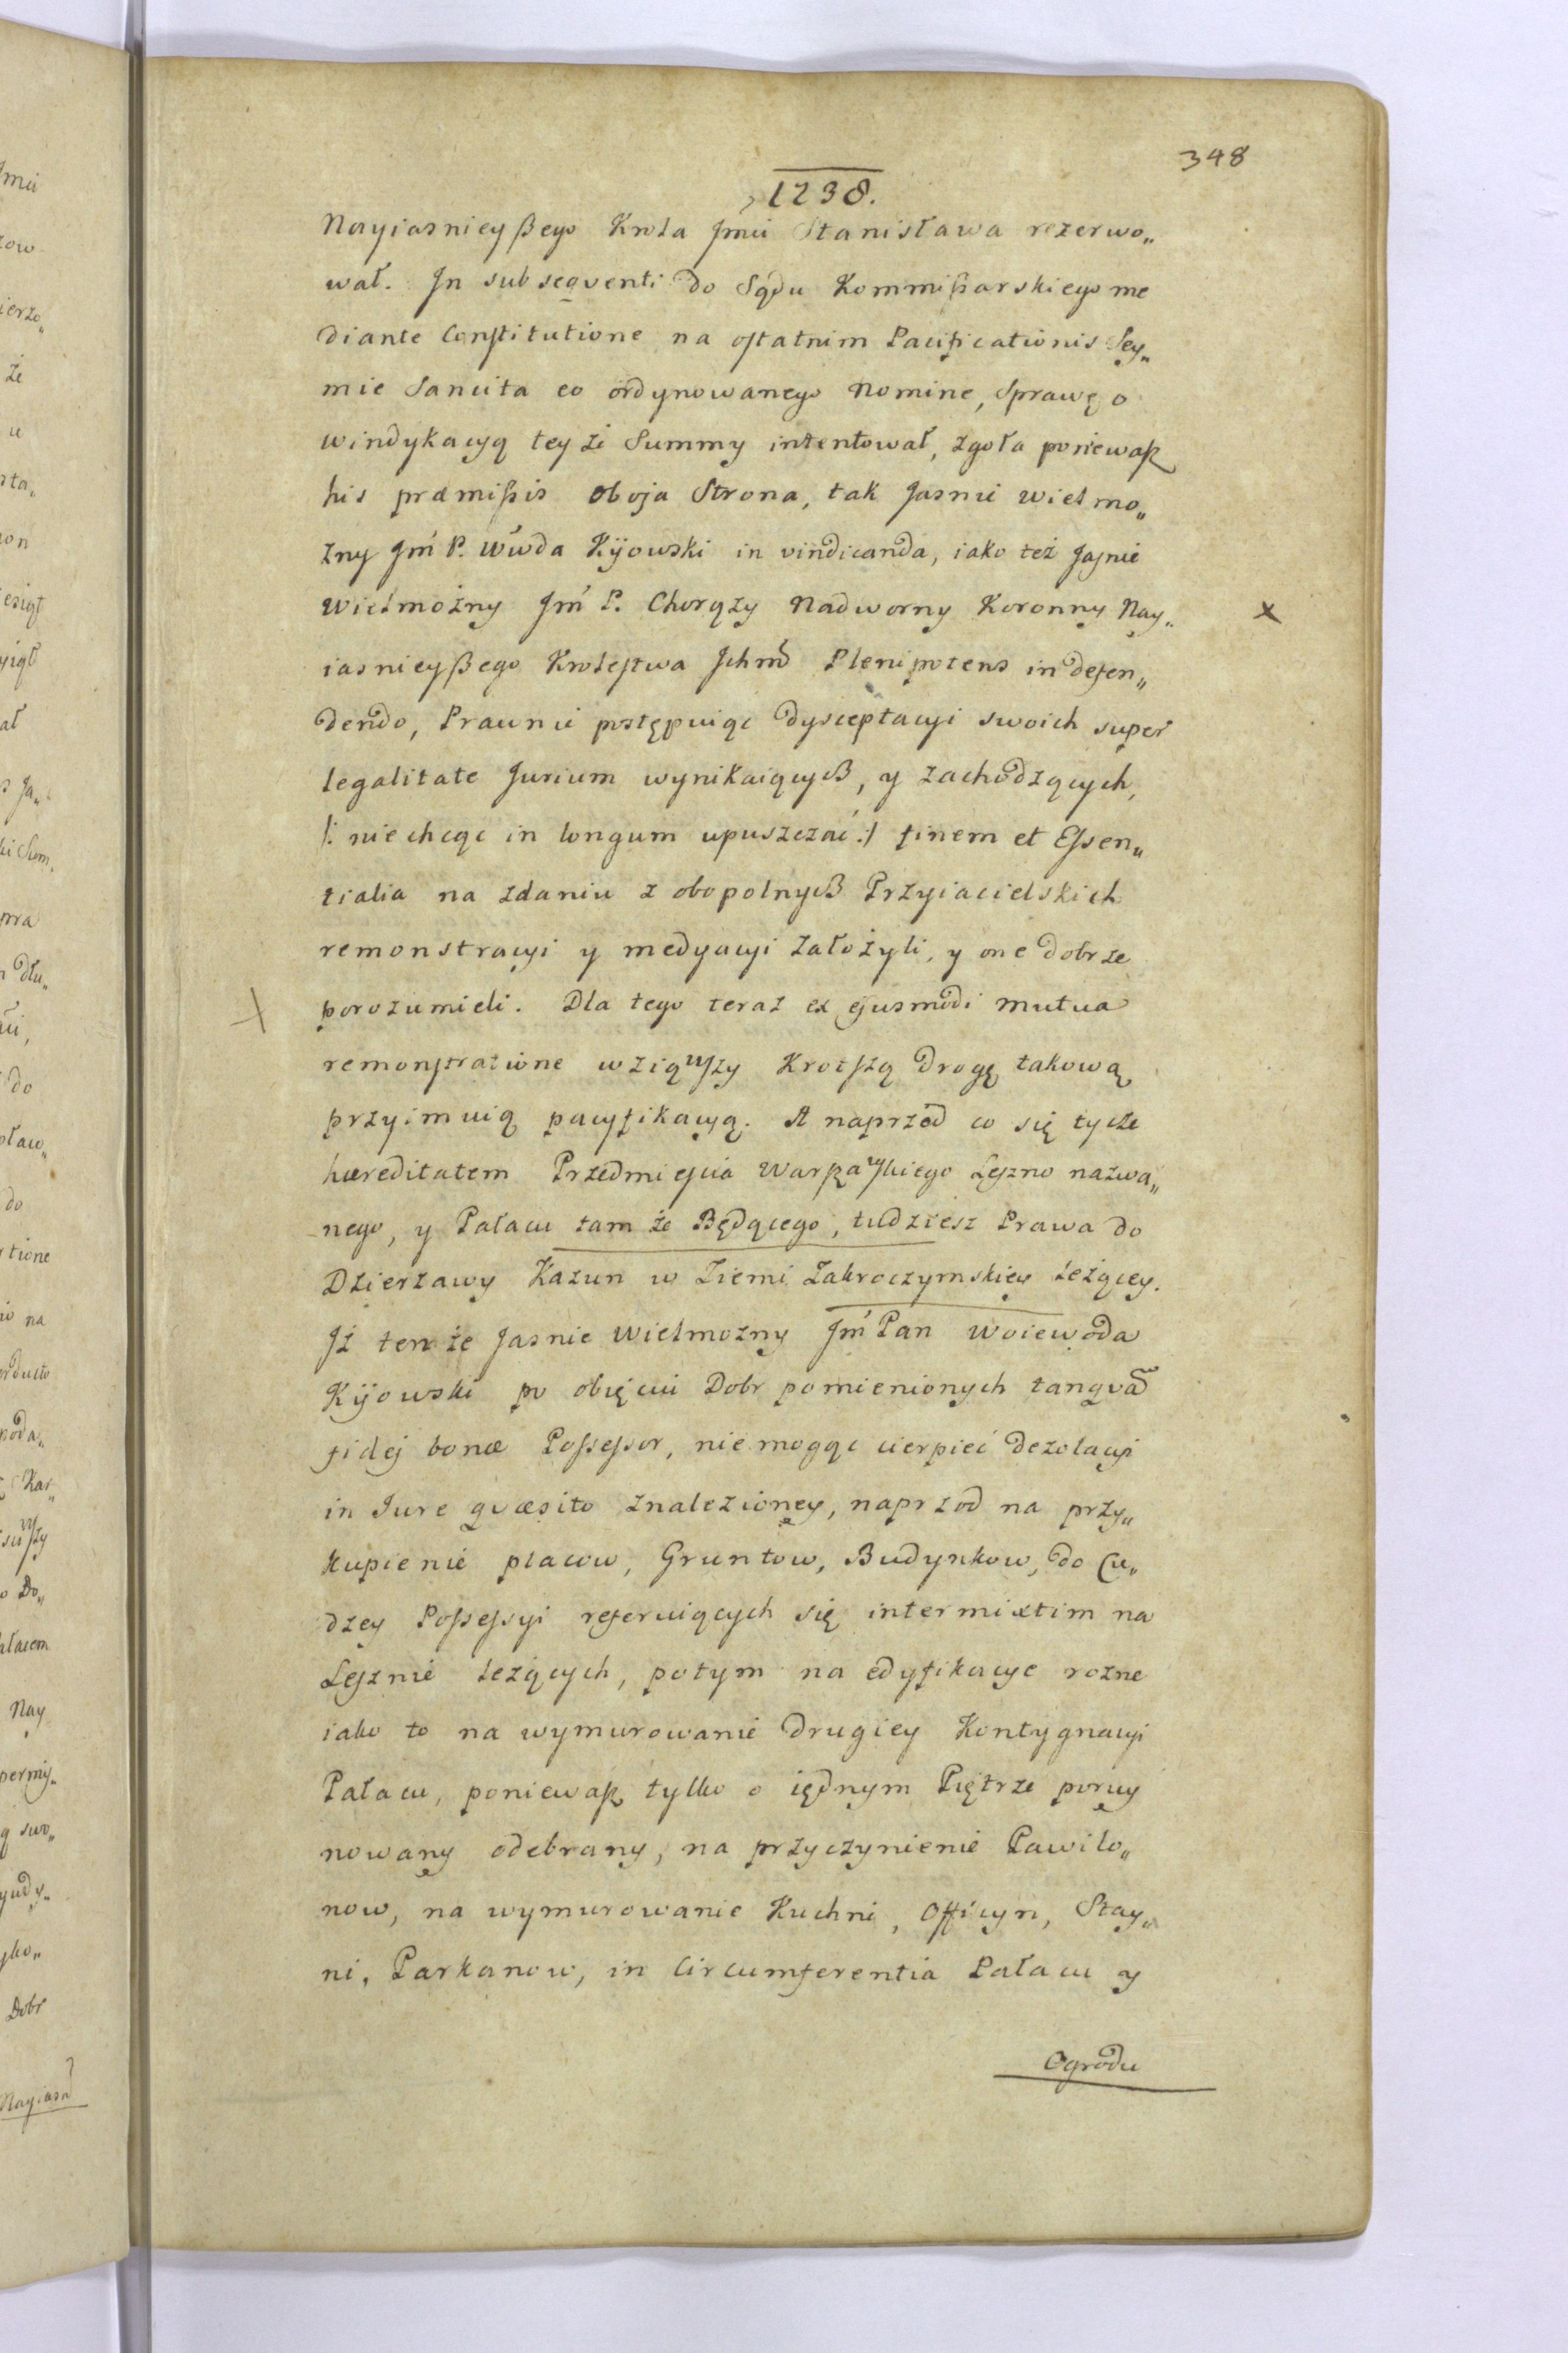 348
1238.
Nayiasnieyßego Krola Jmci Stanisława rezerwo„
wał. Jn subseqventi do Sądu Kommißarskiego me
diante Constitutione na ostatnim Pacificationis Sey„
mie Sancita eo ordynowanego Nomine, Sprawę o
windykacyą teyże Summy intentował, zgoła poniewaſz
his præmißis oboja Strona, tak Jasnie wielmo„
zny Jm̃ P. Wwda Kijowski in vindicanda, iako też Jaſnie
wielmożny Jm̃ P. Chorąży Nadworny Koronny Nay„
iasnieyßego Krolestwa Jchmć Plenipotens in defen„
dendo, Prawnie postępuiąc dysceptacyi swoich super
legalitate Jurium wynikaiących, y zachodzących,
/: nie chcąc in longum upuszczać :/ finem et Eſsen„
tialia na zdaniu z obopolnych Przyiacielskich
remonstracyi y medyacyi założyli, y one dobrze
porozumieli. Dla tego teraz ex ejusmodi mutua
remonstratione wziąwſzy Krotſzą drogę takową
przyimuią pacyfikacyą. A naprzod co się tycze
hæreditatem Przedmieſcia Warſzawſkiego Leſzno nazwa„
nego, y Pałacu tam że Będącego, tudziesz Prawa do
Dzierzawy Kazun w Ziemi Zakroczymskiey leżącey.
Jż ten że Jasnie Wielmozny Jm̃ Pan Woiewoda
Kijowski po obięciu Dobr pomienionych tanqvã
fidej bonæ Poſseſsor, nie mogąc cierpieć dezolacyi
in Jure qvæsito znalezioney, naprzod na przy„
kupienie placow, Gruntow, Budynkow, do Cu„
dzey Poſseſsyi referuiących się intermixtim na
Leſznie leżących, potym na edyfikacye rozne
iako to na wymurowanie drugiey Kontygnacyi
Pałacu, poniewaſz tylko o iednym Piętrze poruy
nowany odebrany, na przyczynienie Pawilo„
now, na wymurowanie Kuchni, Officyn, Stay„
ni, Parkanow, in Circumferentia Pałacu y
Ogrodu